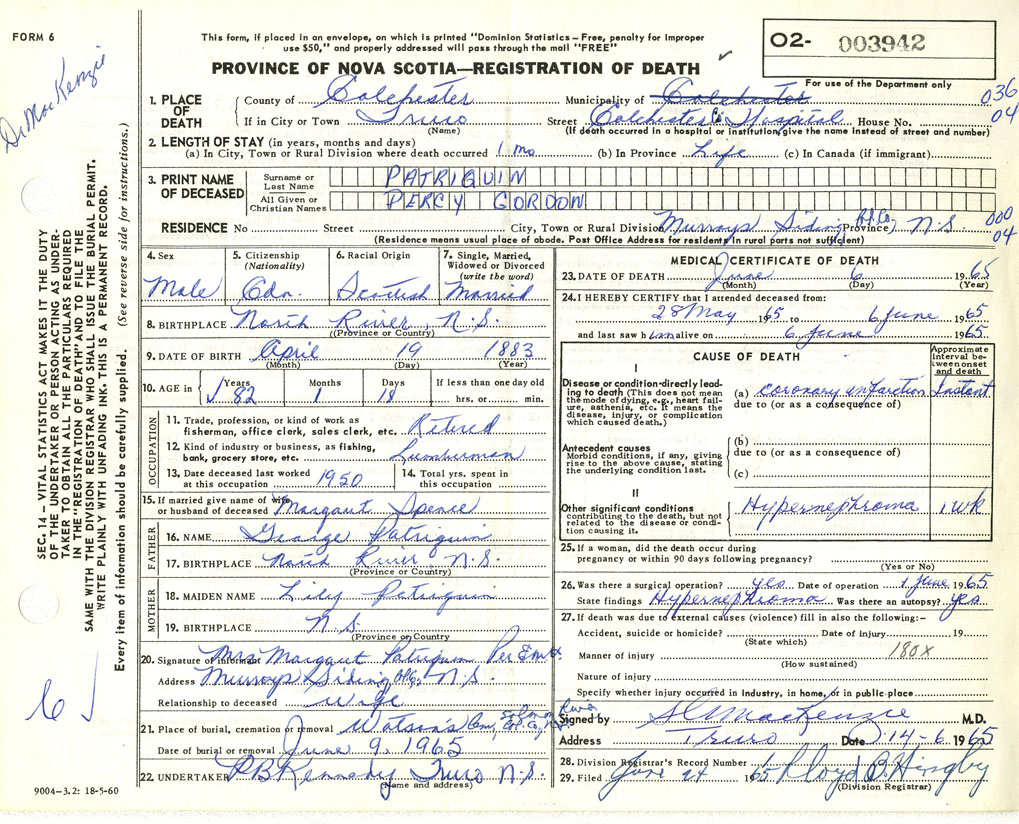 FORM 6
This form, if placed in an envelope, on which is printed "Dominion Statistics – Free, penalty for improper
use $50," and properly addressed will pass through the mail "FREE"
O2- 003942
PROVINCE OF NOVA SCOTIA—REGISTRATION OF DEATH
For use of the Department only
Dr MacKenzie
1. PLACE OF DEATH
County of Colchester Municipality of Colchester 036
If in City or Town Truro Street Colchester Hospital House No. 04
(Name) (If death occurred in a hospital or institution give the name instead of street and number)
2. LENGTH OF STAY (in years, months and days)
(a) In City, Town or Rural Division where death occurred 1 mo (b) In Province Life (c) In Canada (if immigrant)
3. PRINT NAME OF DECEASED
Surname or Last Name PATRIQUIN
All Given or Christian Names PERCY GORDON
RESIDENCE No Street City, Town or Rural Division Murrays Siding Col. Co. Province N.S. 000
04
(Residence means usual place of abode. Post Office Address for residents in rural parts not sufficient)
SEC. 14 – VITAL STATISTICS ACT MAKES IT THE DUTY
OF THE UNDERTAKER OR PERSON ACTING AS UNDER
TAKER TO OBTAIN ALL THE PARTICULARS REQUIRED
IN THE "REGISTRATION OF DEATH" AND TO FILE THE
SAME WITH THE DIVISION REGISTRAR WHO SHALL ISSUE THE BURIAL PERMIT.
WRITE PLAINLY WITH UNFADING INK. THIS IS A PERMANENT RECORD.
Every item of information should be carefully supplied. (See reverse side for instructions.)
4. Sex
Male
5. Citizenship
(Nationality)
Cdn.
6. Racial Origin
Scottish
7. Single, Married,
Widowed or Divorced
(write the word)
Married
8. BIRTHPLACE North River, N.S.
(Province or Country)
9. DATE OF BIRTH April 19 1883
(Month) (Day) (Year)
10. AGE in Years 82 Months 1 Days 18 If less than one day old
hrs. or min.
OCCUPATION
11. Trade, profession, or kind of work as
fisherman, office clerk, sales clerk, etc. Retired
12. Kind of industry or business, as fishing,
bank, grocery store, etc. Lumberman
13. Date deceased last worked
at this occupation 1950
14. Total yrs. spent in
this occupation
15. If married give name of wife
or husband of deceased Margaret Spence
FATHER
16. NAME George Patriquin
17. BIRTHPLACE North River N.S.
(Province or Country)
MOTHER
18. MAIDEN NAME Lily Patriquin
19. BIRTHPLACE N.S.
(Province or Country
20. Signature of informant Mrs Margaret Patriquin Per
Address Murrays Siding Col. Co. N.S.
Relationship to deceased wife
21. Place of burial, cremation or removal Watson's Cem, Salmon River
Date of burial or removal June 9, 1965
22. UNDERTAKER P B Kennedy Truro N.S.
(Name and address)
9004–3.2: 18-5-60
6
MEDICAL CERTIFICATE OF DEATH
23. DATE OF DEATH June 6 1965
(Month) (Day) (Year)
24. I HEREBY CERTIFY that I attended deceased from:
28 May 1965 to 6 June 1965
and last saw him alive on 6 June 1965
CAUSE OF DEATH
Approximate
interval be-
tween onset
and death
I
Disease or condition directly lead-
ing to death (This does not mean
the mode of dying, e.g., heart fail-
ure, asthenia, etc. It means the
disease, injury, or complication
which caused death.)
(a) coronary infarction Instant
due to (or as a consequence of)
Antecedent causes
Morbid conditions, if any, giving
rise to the above cause, stating
the underlying condition last.
(b)
due to (or as a consequence of)
(c)
II
Other significant conditions
contributing to the death, but not
related to the disease or condi-
tion causing it.
Hypernephroma 1 wk
25. If a woman, did the death occur during
pregnancy or within 90 days following pregnancy?
(Yes or No)
26. Was there a surgical operation? yes Date of operation 1 June 1965
State findings Hypernephroma Was there an autopsy? yes
27. If death was due to external causes (violence) fill in also the following:–
Accident, suicide or homicide? Date of injury 19
(State which)
Manner of injury 180X
(How sustained)
Nature of injury
Specify whether injury occurred in industry, in home, or in public place
Signed by MacKenzie M.D.
Address Truro Date 14-6 1965
28. Division Registrar's Record Number
29. Filed June 24 1965 Lloyd B.
(Division Registrar)